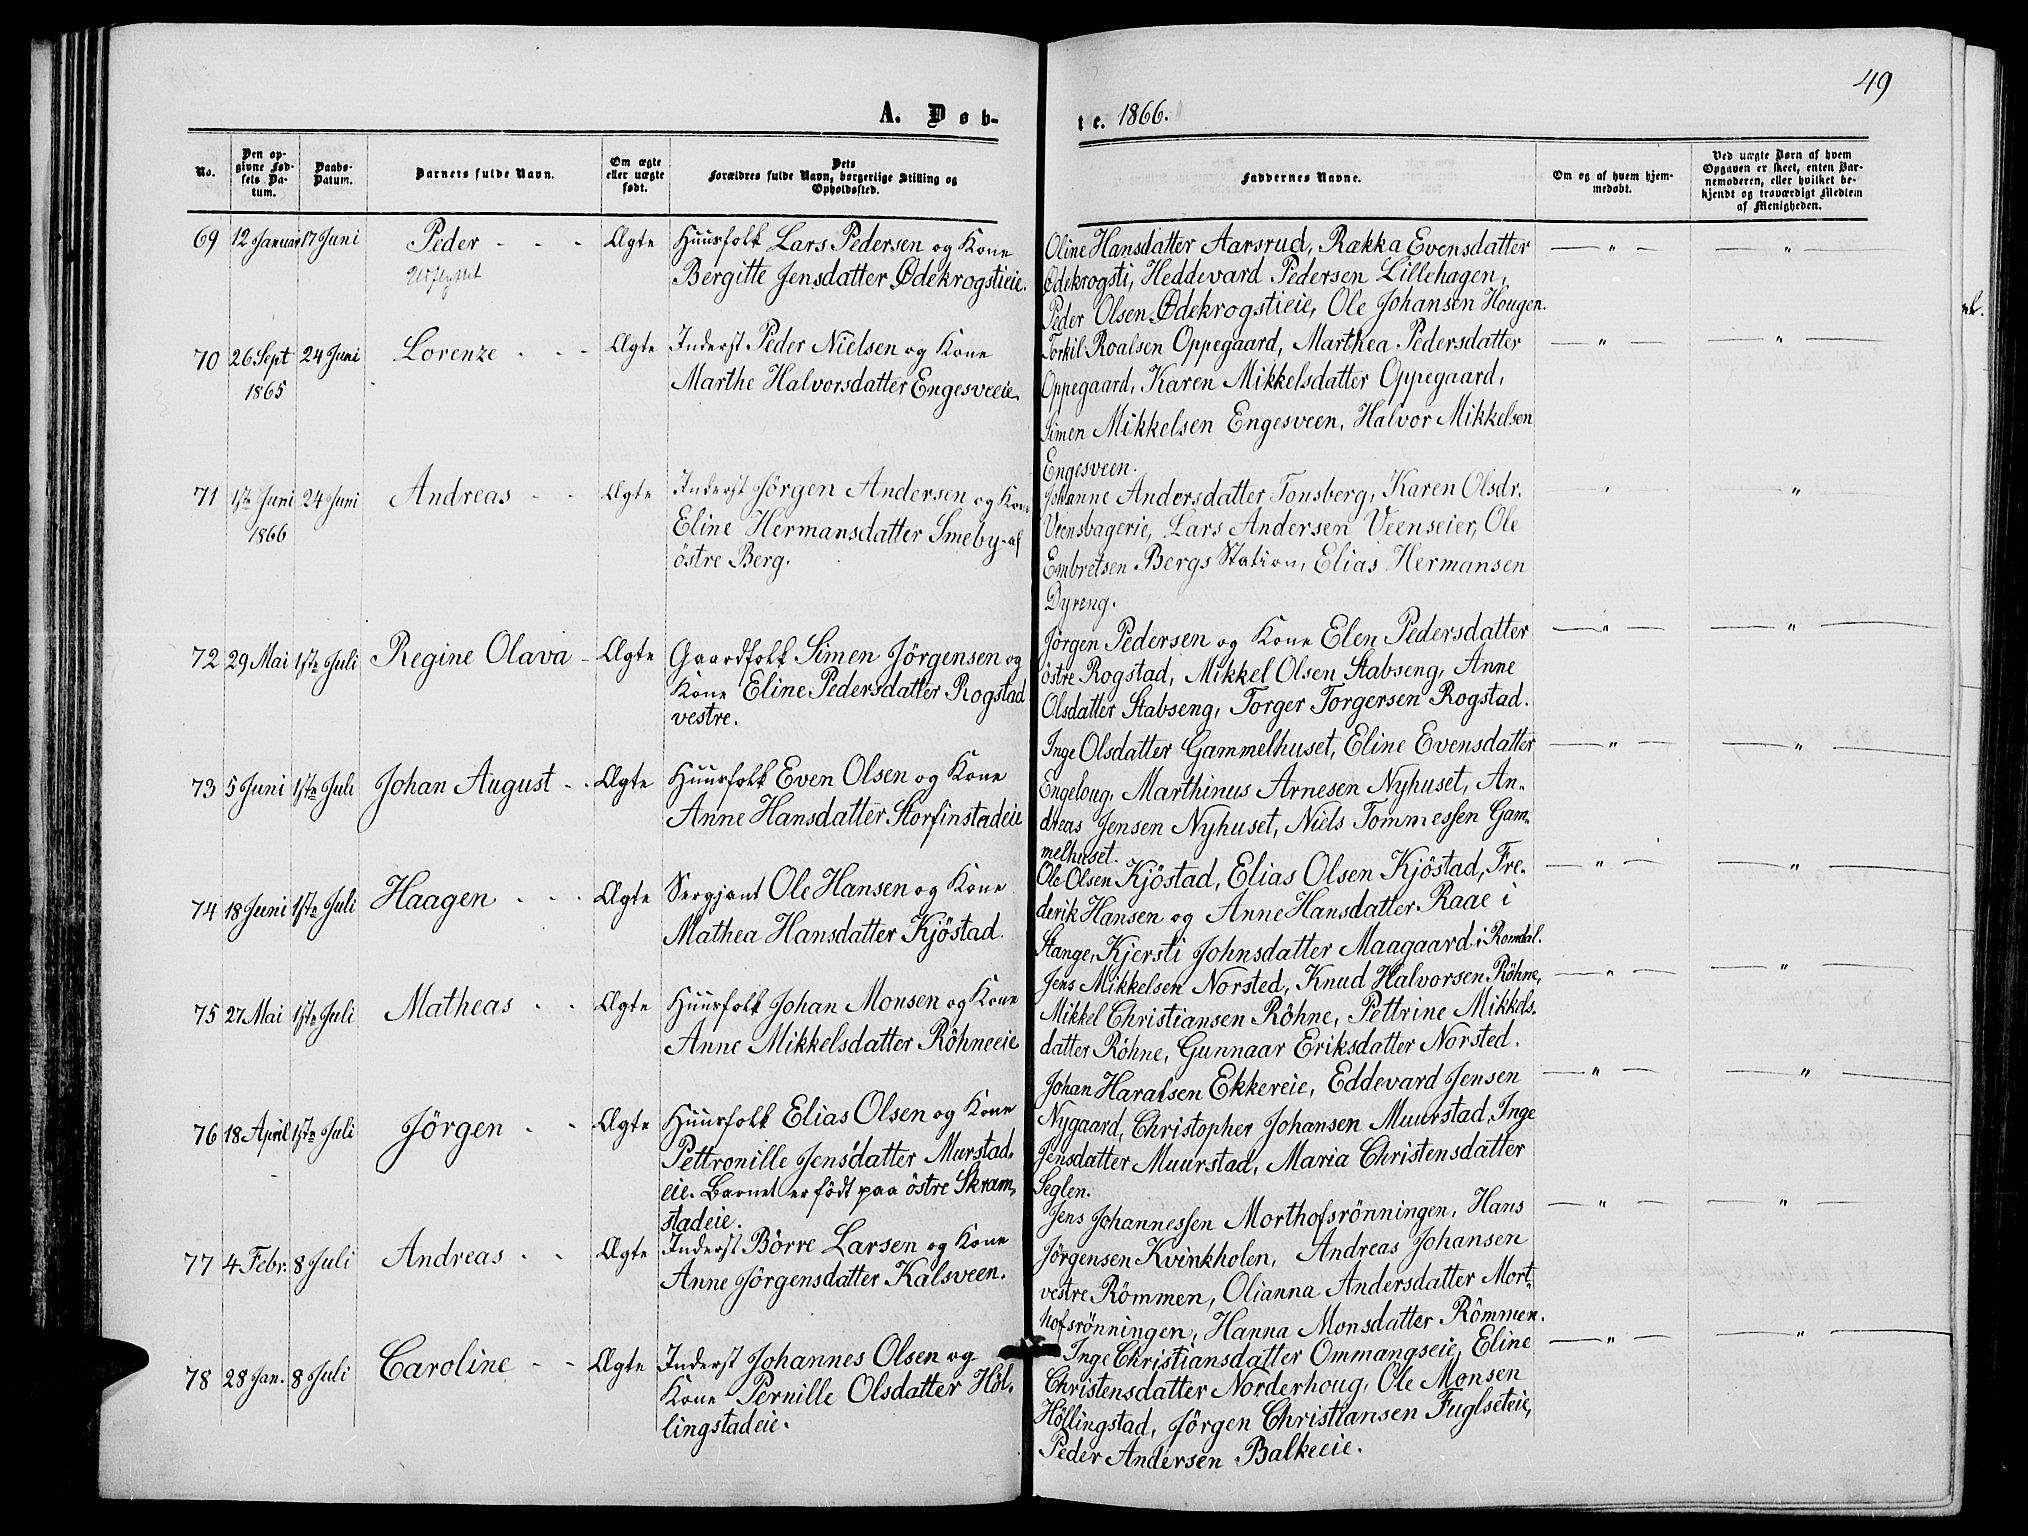 49
A. Døb-
te. 1866.
No.
Den op-
givne Fød-
sels Da-
tum.
Daabs-
Datum.
Barnets fulde Navn.
Om ægte
eller uægte
født.
Dets
Forældres fulde Navn, borgerlige Stilling og
Opholdssted.
Faddernes Navne.
Om og af hvem hjem-
medøbt.
Ved uægte Børn af hvem
Opgaven er skeet, enten Bar-
nemoderen, eller hvilket be-
kjendt og troværdigt Medlem
af Menigheden.
69 12 Januar 17 Juni Peder - - - Ægte Huusfolk Lars Pedersen og Kone
Bergitte Jensdatter Ødekrogstieie.
Oline Hansdatter Aarsrud, Rækka Evensdatter
Ødekrogsti, Heddevard Pedersen Lillehagen,
Peder Olsen Ødekrogstieie, Ole Johansen Hougen.
— " — — " —
70 26 Sept 24 Juni Lorenze - - - Ægte Inderst Peder Nielsen og Kone
1865 Marthe Halvorsdatter Engesveeie.
Torkil Roalsen Oppegaard, Marthea Pedersdatter
Oppegaard, Karen Mikkelsdatter Oppegaard,
Simen Mikkelsen Engesveen, Halvor Mikkelsen
Engesveen.
— " — — " —
71 1ste Juni 24 Juni Andreas - - Ægte Inderst Jörgen Andersen og Kone
1866 Eline Hermansdatter Smeby-al
östre Berg.
Johanne Andersdatter Tonsberg, Karen Olsdr.
Veensbagerie, Lars Andersen Veenseier, Ole
Embretsen Bergs Station, Elias Hermansen
Dyreng.
— " — — " —
72 29 Mai 1ste Juli Regine Olava - Ægte Gaardfolk Simen Jörgensen og
Kone Eline Pedersdatter Rogstad
vestre.
Jörgen Pedersen og Kone Elen Pedersdatter
östre Rogstad, Mikkel Olsen Stabseng, Anne
Olsdatter Stabseng, Torger Torgersen Rogstad.
— " — — " —
73 5 Juni 1ste Juli Johan August - - Ægte Huusfolk Even Olsen og Kone
Anne Hansdatter Storfinstadeie
Inge Olsdatter Gammelhuset, Eline Evensdatter
Engeloug, Marthinus Arnesen Nyhuset, An-
dreas Jensen Nyhuset, Niels Tommessen Gam-
melhuset.
— " — — " —
74 18 Juni 1ste Juli Haagen - - - Ægte Sergjant Ole Hansen og Kone
Mathea Hansdatter Kjöstad.
Ole Olsen Kjöstad, Elias Olsen Kjöstad, Fre-
derik Hansen og Anne Hansdatter Raae i
Stange, Kjersti Johnsdatter Maagaard i Romdal.
— " — — " —
75 27 Mai 1ste Juli Matheas - - Ægte Huusfolk Johan Monsen og Kone
Anne Mikkelsdatter Röhneeie
Jens Mikkelsen Norsted, Knud Halvorsen Röhne,
Mikkel Christiansen Röhne, Pettrine Mikkels-
datter Röhne, Gunnaar Eriksdatter Norsted.
— " — — " —
76 18 April 1ste Juli Jörgen - - Ægte Huusfolk Elias Olsen og Kone
Pettronille Jensdatter Murstad-
eie. Barnet er födt paa östre Skram-
stadeie.
Johan Haralsen Ekkereie, Eddevard Jensen
Nygaard, Christopher Johansen Muurstad, Inge
Jensdatter Muurstad, Maria Christensdatter
Seglen.
— " — — " —
77 4 Febr. 8 Juli Andreas - - Ægte Inderst Börre Larsen og Kone
Anne Jörgensdatter Kalsveen.
Jens Johannessen Morthofsrönningen, Hans
Jörgensen Kvinkholen, Andreas Johansen
vestre Römmen, Olianna Andersdatter Mort-
hofsrönningen, Hanna Monsdatter Römmen.
— " — — " —
78 28 Jan. 8 Juli Caroline - - Ægte Inderst Johannes Olsen og
Kone Pernille Olsdatter Höl-
lingstadeie.
Inge Christiansdatter Ommangseie, Eline
Christensdatter Norderhoug, Ole Monsen
Höllingstad, Jörgen Christiansen Fuglseteie,
Peder Andersen Balkeeie.
— " — — " —